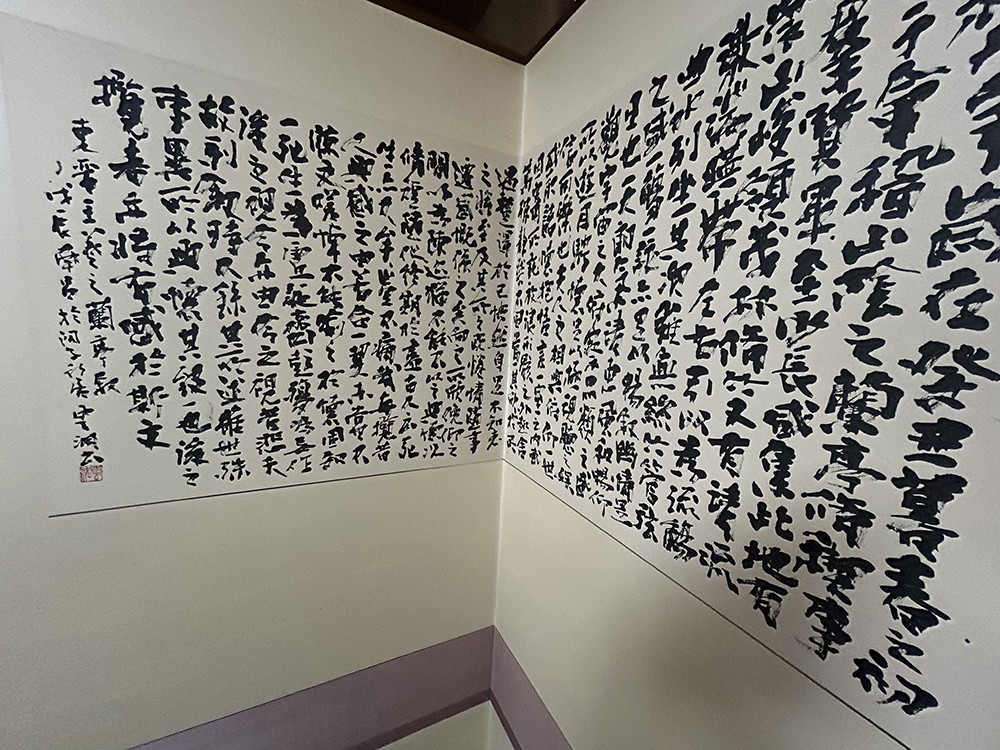 年歲在癸丑暮春之初
于會稽山陰之蘭亭脩禊事
群賢畢至少長咸集此地有
崇山峻領茂林脩竹又有清流
激湍映帶左右引以為流觴
曲水列坐其次雖無絲竹管弦
之盛一觴一詠亦足以暢叙幽情是
日也天朗氣清惠風和暢仰
觀宇宙之大俯察品類之盛
所以遊目騁懷足以極視聽之娛
信可樂也夫人之相與俯仰一世
或取諸懷抱悟言一室之內或
因寄所託放浪形骸之外雖趣舍
萬殊靜躁不同
遇暫得於己快然自足不知老
之將至及其所之既惓情隨事
遷感慨係之矣向之所欣俛仰之
間以為陳迹猶不能不以之興懷況
脩短隨化終期於盡古人云死
生亦大矣豈不痛哉每攬昔
人興感之由若合一契未嘗不
臨文嗟悼不能喻之於懷固知
一死生為虛誕齊彭殤為妄作
後之視今亦由今之視昔悲夫
故列叙時人錄其所述雖世殊
事異所以興懷其致一也後之
攬者亦將有感於斯文
東晉王羲之蘭亭叙
戊辰